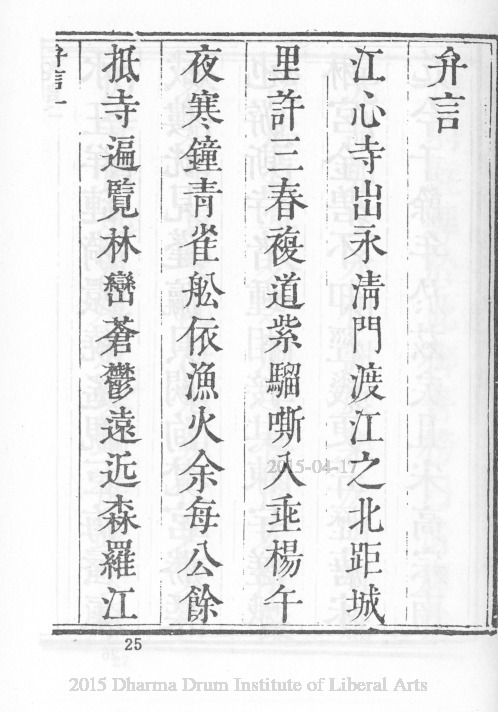 弁言
江心寺出永清門渡江之北距城
里許三春複道紫騮嘶入垂楊午
夜寒鐘青雀舩依漁火余每公餘
抵寺遍覽林巒蒼鬱遠近森羅江
弁言一
2015-04-17
25
2015 Dharma Drum Institute of Liberal Arts